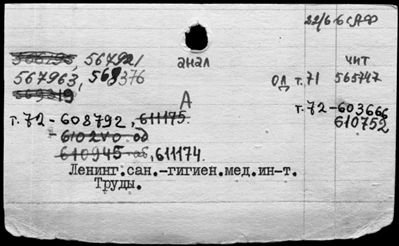 22/6 6 САФ
567921
анал
чит
567963, 568376
од т.71 565747
569319
А
т.72-608792, 611175.
т.72-603666
610752
610240.об
610945 об, 611174.
Ленинг.сан.-гигиен.мед.ин-т.
Труды.